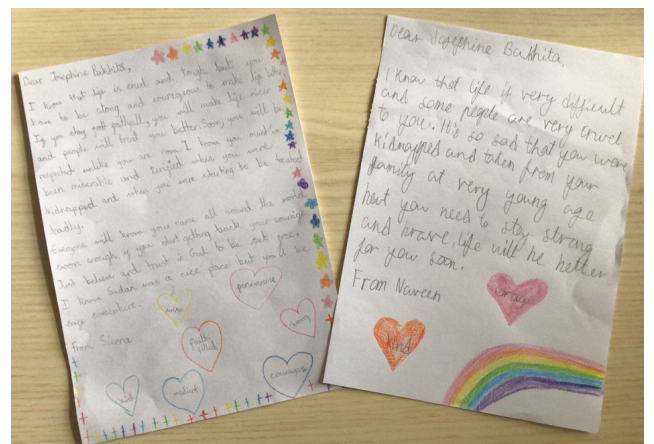 Dear Josephine Bakhita,
I know that life is cruel and tough but you
have to be strong and courageous to make life better.
If you stay faithfull, you will make life nicer
and people will treat you better. Soon, you will be
respected unlike you are now. I know you must've
been miserable and terrified when you were
kidnapped and when you were starting to be treated
badly.
Everyone will know your name all around the world
soon enough if you start getting back your courage.
Just believe and trust in God to be set free!
I know Sudan was a nice place but you'll be
safe somewhere.
From Sienna
perseverance
faith
filled
kind
resilient
courageous
Dear Josephine Bakhita,
I know that life is very difficult
and some people are very cruel
to you. It's so sad that you were
kidnapped and taken from your
family at very young age
but you need to stay strong
and brave, life will be better
for you soon.
From Naveen
courage
kind